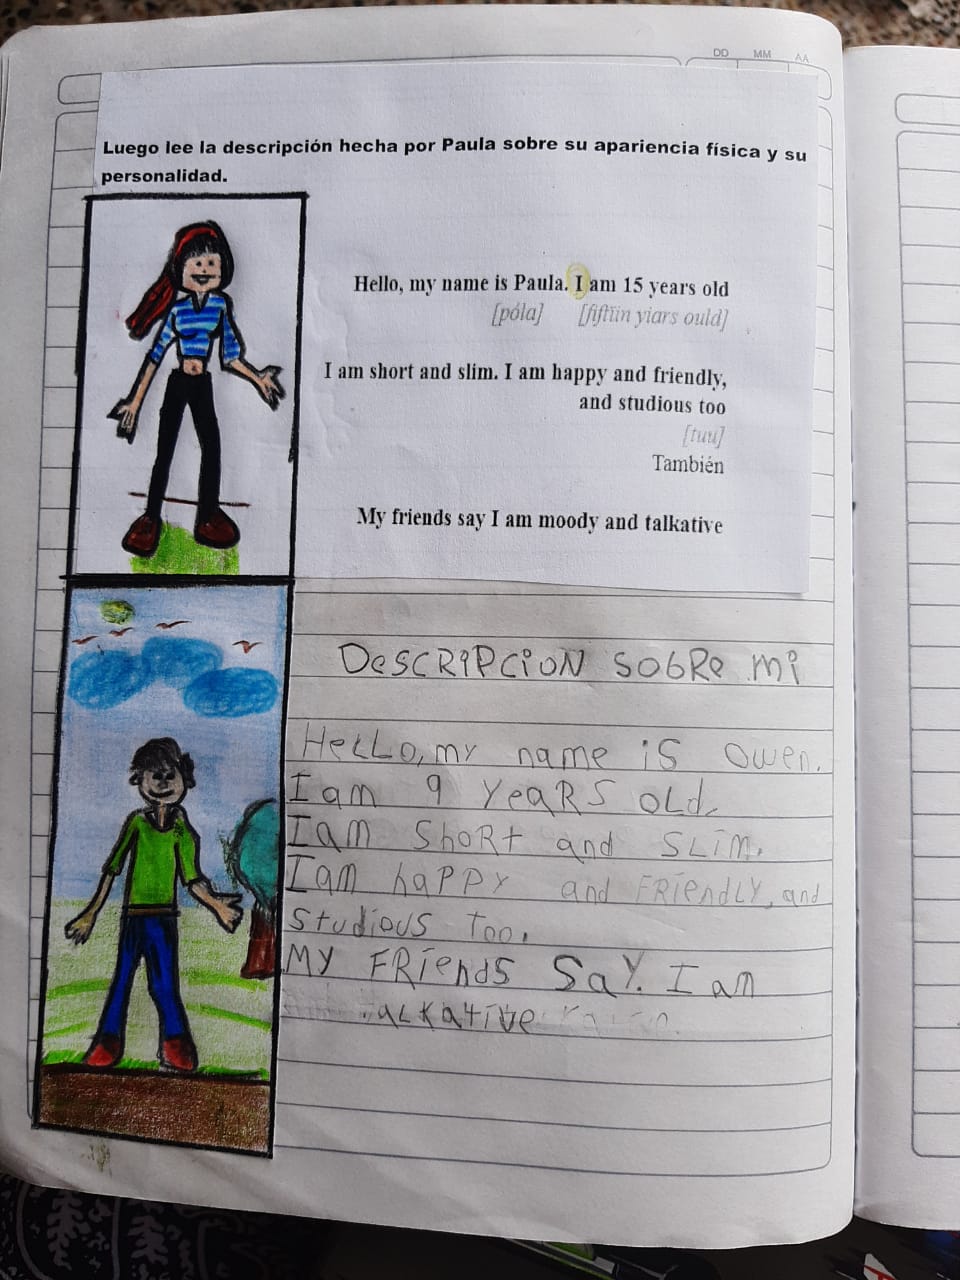 DD MM AA
Luego lee la descripción hecha por Paula sobre su apariencia física y su
personalidad.
Hello, my name is Paula. I am 15 years old
[póla] [fiftíin yiars ould]
I am short and slim. I am happy and friendly,
and studious too
[tuu]
También
My friends say I am moody and talkative
DESCRIPCION SOBRE mi
HeLLO, my name is Owen.
I am 9 years old.
I am short and slim.
I am happy and friendly, and
studious too.
My friends say. I am
talkative